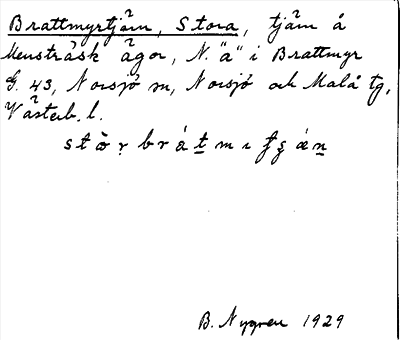 Brattmyrtjärn, Stora, tjärn å
Mensträsk ägor, N. "ä" i Brattmyr
G. 43, Norsjö sn, Norsjö och Malå tg,
Västerb. l.
B. Nygren 1929